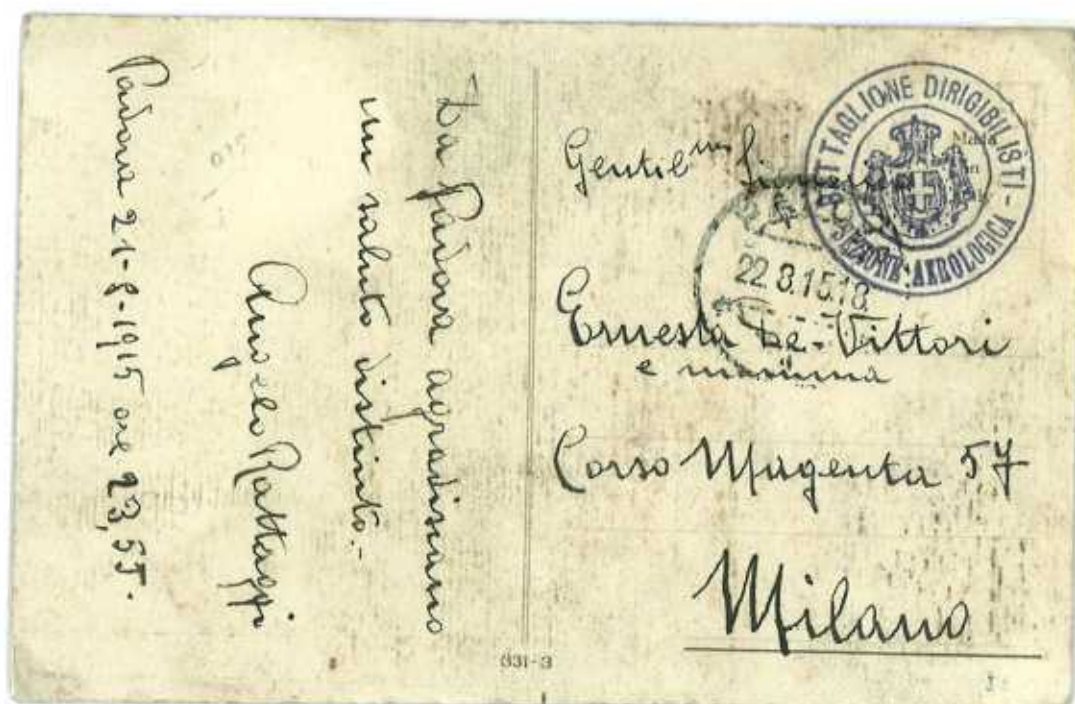 Da Padova agradiscano
un saluto distinto.-
Angelo Rattaggi
Padova 21-8-1915 ore 23,55.
BATTAGLIONE DIRIGIBILISTI -
SEZIONE AEROLOGICA
Made
22.8.15.18
Gentil me
Ernesta De-Vittori
e mamma
Corso Magenta 57
Milano
831-3